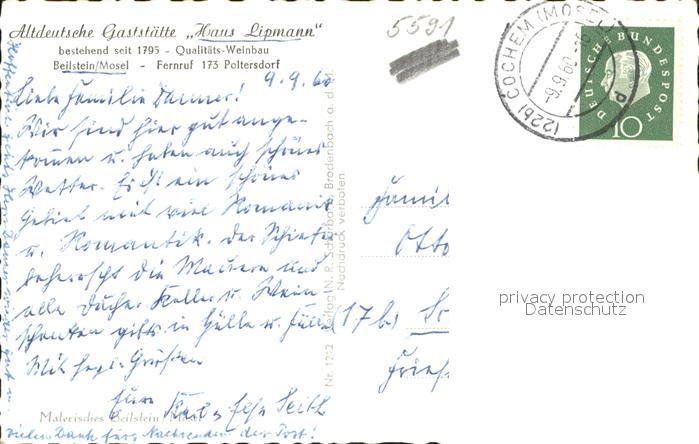 Altdeutsche Gaststätte „Haus Lipmann"
bestehend seit 1795 - Qualitäts-Weinbau
Beilstein/Mosel - Fernruf 173 Poltersdorf
9.9.60
Liebe Familie Danner!
Wir sind hier gut ange-
kommen u. haben auch schönes
Wetter. Es ist ein schönes
Gebiet mit viel Romanik
u. Romantik. Der Schiefer
beherrscht die Mauern und
alle Dächer. Keller u. Wein-
schenken gibts in Hülle u. Fülle.
Mit herzl. Grüßen
Ihre
Malerisches Beilstein/Mosel
vielen Dank fürs Nachsenden der Post!
Nr. 1212 Verlag N. P. Schaarbach, Brodenbach a. d. M.
Nachdruck verboten
5591
(22b) COCHEM (MOSEL)
-9.9.60
d
DEUTSCHE BUNDESPOST
10
Famil
Otto
(17b)
privacy protection
Datenschutz